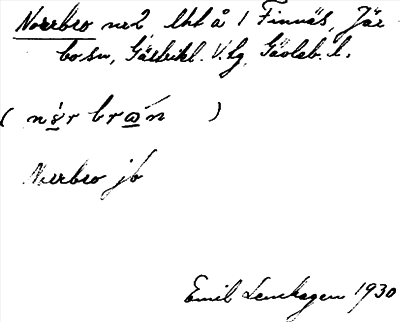 Norrbro nr 2 lht å 1 Finnäs, Jär-
bo sn, Gästrikl. V. lg, Gävleb. l.
(nɤ́r brωn)
Norrbro jb
Emil Lenhagen 1930